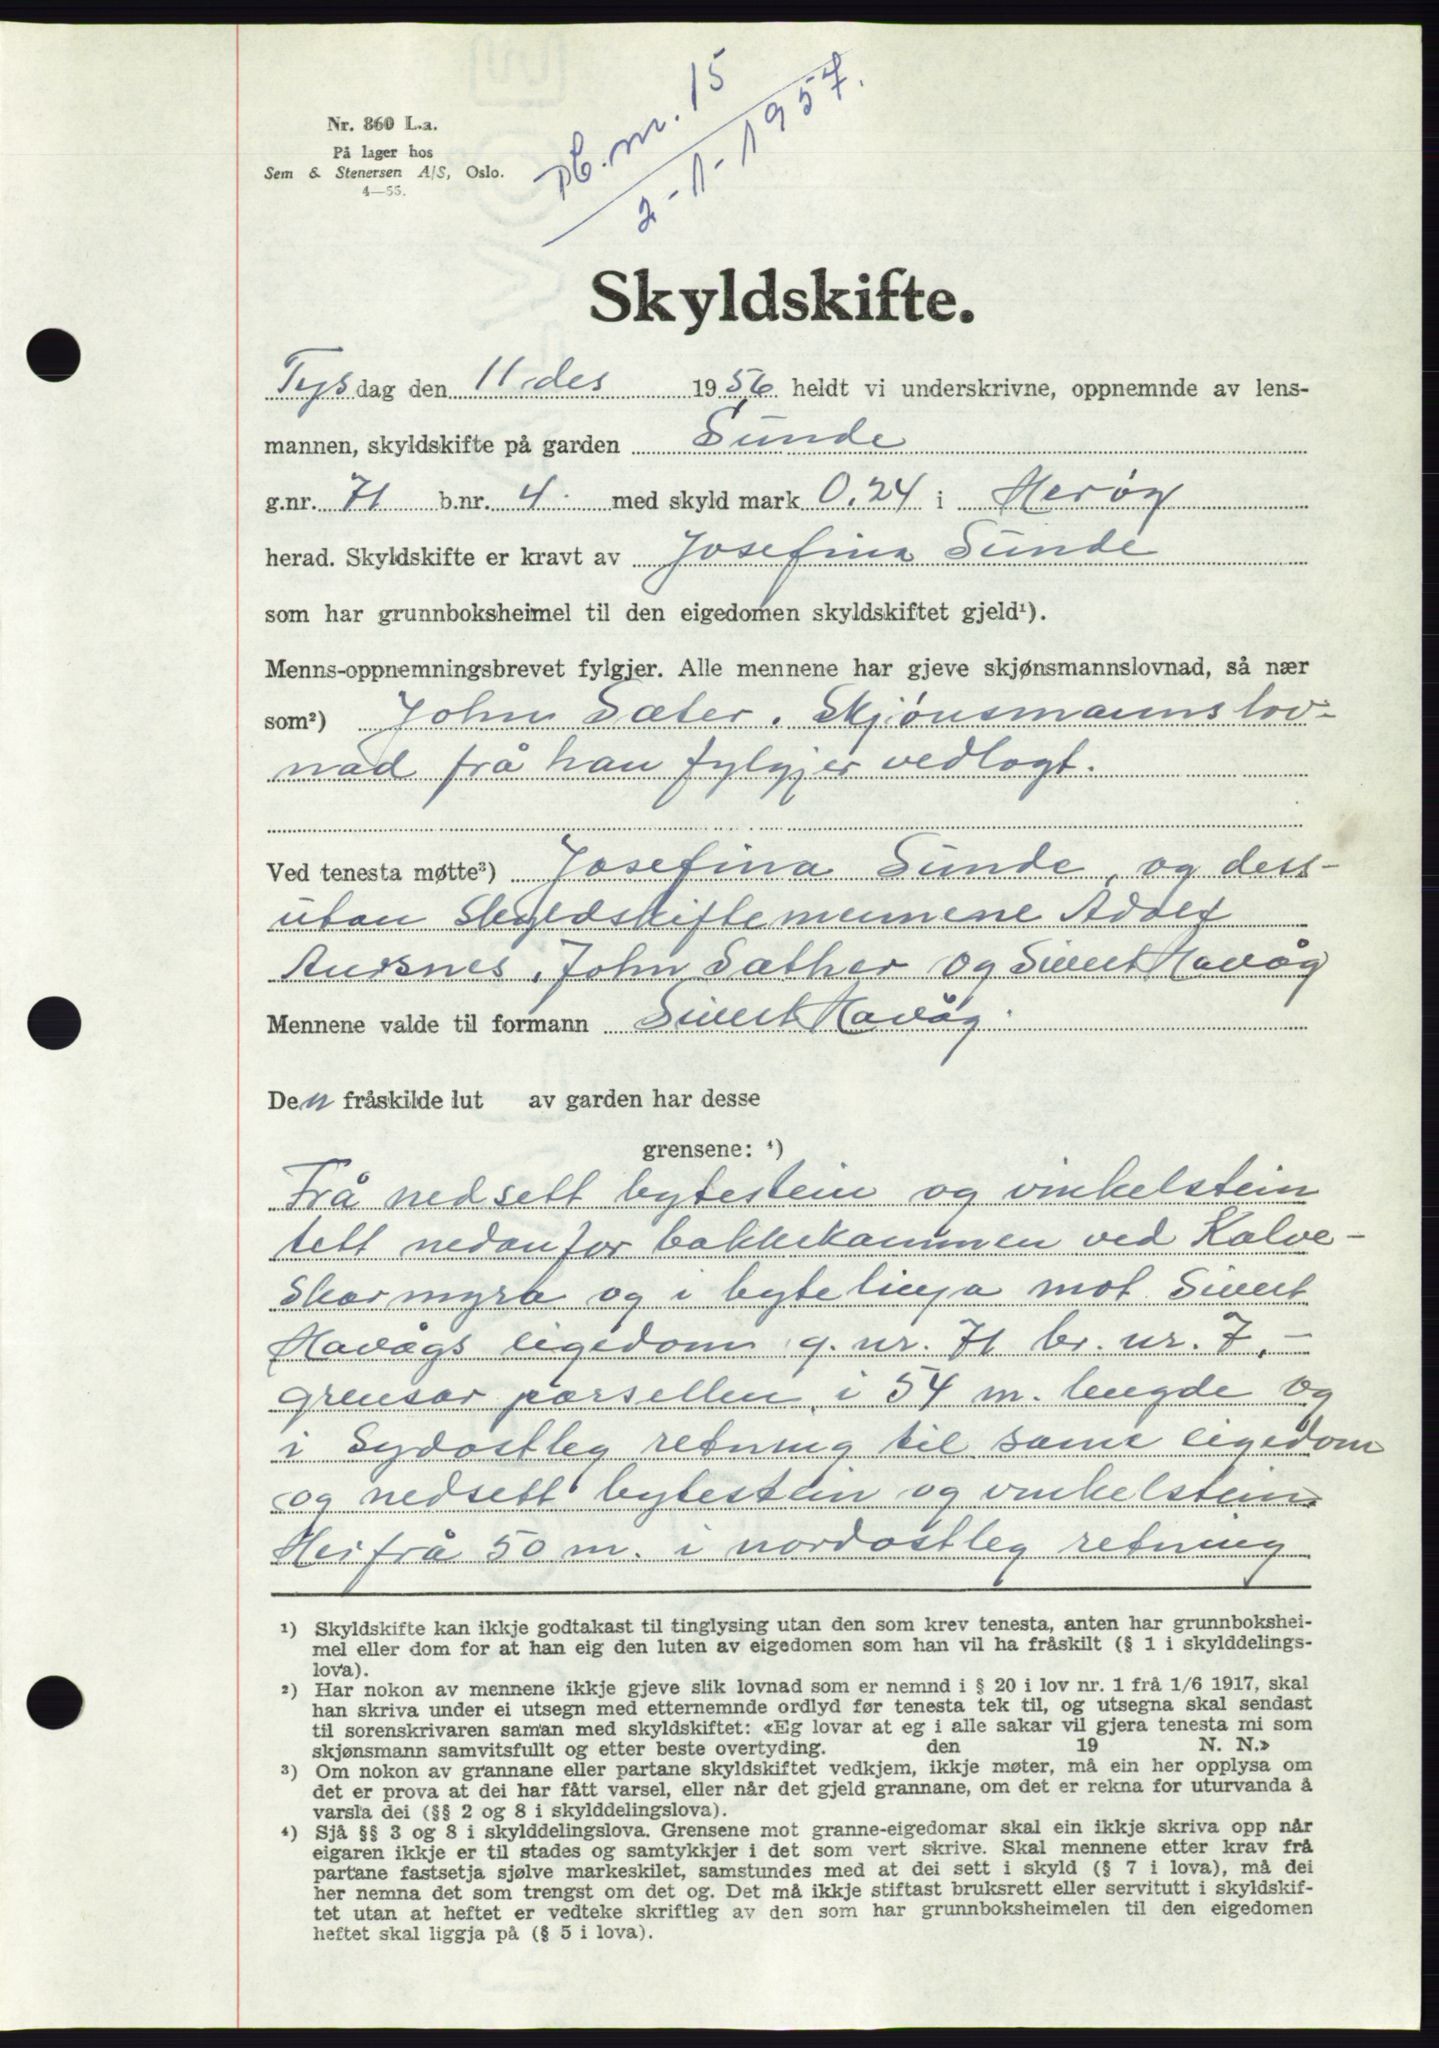 Nr. 860 L.a.
På lager hos
Sem & Stenersen A/S, Oslo.
4—55.
Pb. nr. 15
2-1-1957.
Skyldskifte.
Tysdag den 11. des 1956 heldt vi underskrivne, oppnemnde av lens-
mannen, skyldskifte på garden Sunde
g.nr. 71 b.nr. 4. med skyld mark 0.24 i Herøy
herad. Skyldskifte er kravt av Josefina Sunde
som har grunnboksheimel til den eigedomen skyldskiftet gjeld¹).
Menns-oppnemningsbrevet fylgjer. Alle mennene har gjeve skjønsmannslovnad, så nær
som²) John Sæter. Skjønsmannslov-
nad frå han fylgjer vedlagt.
Ved tenesta møtte³) Josefina Sunde, og dess-
utan skyldskiftemennene Adolf
Aursnes, John Sæther og Sivert Havåg
Mennene valde til formann Sivert Havåg.
Den fråskilde lut av garden har desse
grensene: ⁴)
Frå nedsett bytestein og vinkelstein
tett nedanfor bakkekammen ved Kalve-
skarmyra og i bytelinja mot Sivert
Havågs eigedom g. nr. 71 br. nr. 7. -
grensar parsellen i 54 m. lengde og
i sydostleg retning til same eigedom
og nedsett bytestein og vinkelstein.
Herfrå 50 m. i nordostleg retning
¹) Skyldskifte kan ikkje godtakast til tinglysing utan den som krev tenesta, anten har grunnbokshei-
mel eller dom for at han eig den luten av eigedomen som han vil ha fråskilt (§ 1 i skylddelings-
lova).
²) Har nokon av mennene ikkje gjeve slik lovnad som er nemnd i § 20 i lov nr. 1 frå 1/6 1917, skal
han skriva under ei utsegn med etternemnde ordlyd før tenesta tek til, og utsegna skal sendast
til sorenskrivaren saman med skyldskiftet: «Eg lovar at eg i alle sakar vil gjera tenesta mi som
skjønsmann samvitsfullt og etter beste overtyding. den 19 N. N.»
³) Om nokon av grannane eller partane skyldskiftet vedkjem, ikkje møter, må ein her opplysa om
det er prova at dei har fått varsel, eller når det gjeld grannane, om det er rekna for uturvanda å
varsla dei (§§ 2 og 8 i skylddelingslova).
⁴) Sjå §§ 3 og 8 i skylddelingslova. Grensene mot granne-eigedomar skal ein ikkje skriva opp når
eigaren ikkje er til stades og samtykkjer i det som vert skrive. Skal mennene etter krav frå
partane fastsetja sjølve markeskilet, samstundes med at dei sett i skyld (§ 7 i lova), må dei
her nemna det som trengst om det og. Det må ikkje stiftast bruksrett eller servitutt i skyldskif-
tet utan at heftet er vedteke skriftleg av den som har grunnboksheimelen til den eigedomen
heftet skal liggja på (§ 5 i lova).